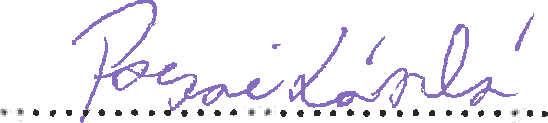 Pocsai László